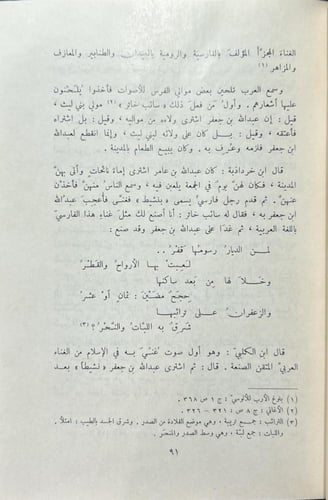 الغناء المجزّأ المؤلف بالفارسية والرومية بالعيدان والطنابير والمعازف
والمزاهر (١)
وسمع العرب تلحين بعض موالي الفرس للأصوات فأخذوا يلحنون
عليها أشعارهم. وأول من فعل ذلك « سائب خاثر » (٢) مولى بني ليث،
قيل : إن عبدالله بن جعفر اشترى ولاءه من مواليه، وقيل : بل اشتراه
فأعتقه، وقيل : بل كان على ولائه لبني ليث، وإنما انقطع لعبدالله
ابن جعفر فلزمه وعرف به. وكان يبيع الطعام بالمدينة.
قال ابن خرداذبة : كان عبدالله بن عامر اشترى إماء نائحات وأتى بهنّ
المدينة، فكان لهنّ يوم في الجمعة يلعبن فيه، وسمع الناس منهنّ فأخذن
عنهنّ. ثم قدم رجل فارسي يسمى « بنشيط » فغنّى، فأعجب عبدالله
ابن جعفر به، فقال له سائب خاثر : أنا أصنع لك مثل غناء هذا الفارسيّ
باللغة العربية، ثم غدا على عبدالله بن جعفر وقد صنع :
لمن الديار رسومها قفر ..
لعبت بها الأرواح والقطر
وخلا لها من بعد ساكنها
حجج مضين : ثمان أو عشر
والزعفران على ترائبها
شرق به اللبات والنحر ؟ (٣)
قال ابن الكلبي : وهو أول صوت غنّي به في الإسلام من الغناء
العربي المتقن الصنعة. قال : ثم اشترى عبدالله بن جعفر « نشيطاً » بعد
(١) بلوغ الأرب للآلوسي : ج ١ ص ٣٦٨.
(٢) الأغاني : ج ٨ ص : ٣٢١ - ٣٢٦.
(٣) الترائب : جمع تريبة، وهي موضع القلادة من الصدر. وشرق الجسد بالطيب : امتلأ.
واللبات : جمع لبّة، وهي وسط الصدر والمنحر.
٩١